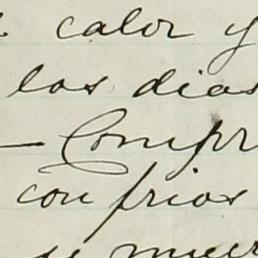 calor y
los dias
— Compr
con frios
se muer